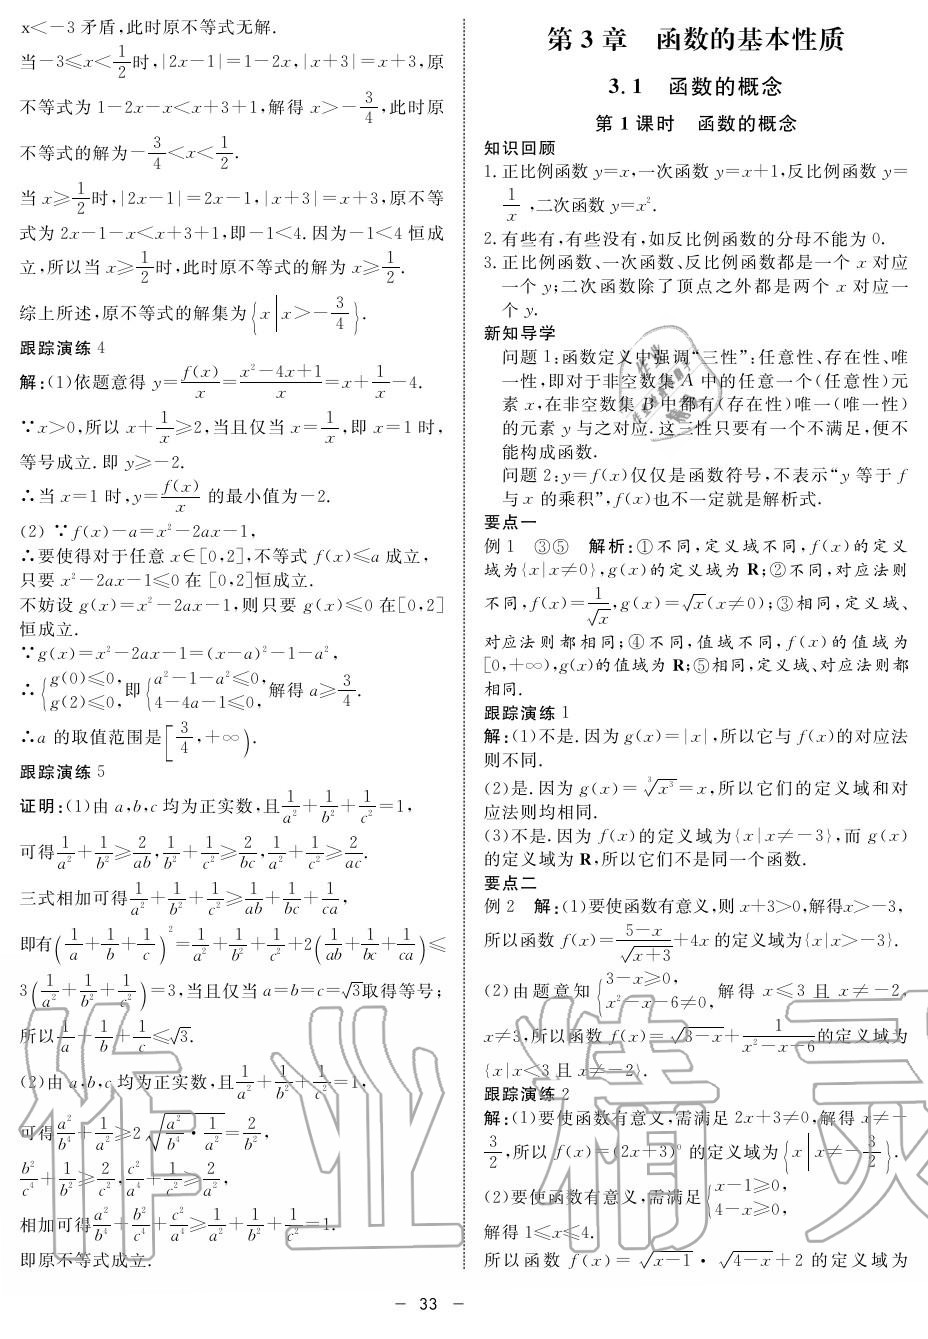 x<-3 矛盾,此时原不等式无解.
当-3≤x<1/2时,|2x-1|=1-2x,|x+3|=x+3,原
不等式为 1-2x-x<x+3+1,解得 x>-3/4,此时原
不等式的解为-3/4<x<1/2.
当 x≥1/2时,|2x-1|=2x-1,|x+3|=x+3,原不等
式为 2x-1-x<x+3+1,即-1<4.因为-1<4 恒成
立,所以当 x≥1/2时,此时原不等式的解为 x≥1/2.
综上所述,原不等式的解集为{x|x>-3/4}.
跟踪演练 4
解:(1)依题意得 y=f(x)/x=(x²-4x+1)/x=x+1/x-4.
∵x>0,所以 x+1/x≥2,当且仅当 x=1/x,即 x=1 时,
等号成立.即 y≥-2.
∴当 x=1 时,y=f(x)/x 的最小值为-2.
(2) ∵f(x)-a=x²-2ax-1,
∴要使得对于任意 x∈[0,2],不等式 f(x)≤a 成立,
只要 x²-2ax-1≤0 在 [0,2]恒成立.
不妨设 g(x)=x²-2ax-1,则只要 g(x)≤0 在[0,2]
恒成立.
∵g(x)=x²-2ax-1=(x-a)²-1-a²,
∴{g(0)≤0, g(2)≤0, 即{a²-1-a²≤0, 4-4a-1≤0, 解得 a≥3/4.
∴a 的取值范围是[3/4,+∞).
跟踪演练 5
证明:(1)由 a,b,c 均为正实数,且1/a²+1/b²+1/c²=1,
可得1/a²+1/b²≥2/ab,1/b²+1/c²≥2/bc,1/a²+1/c²≥2/ac.
三式相加可得1/a²+1/b²+1/c²≥1/ab+1/bc+1/ca,
即有(1/a+1/b+1/c)²=1/a²+1/b²+1/c²+2(1/ab+1/bc+1/ca)≤
3(1/a²+1/b²+1/c²)=3,当且仅当 a=b=c=√3取得等号;
所以1/a+1/b+1/c≤√3.
(2)由 a,b,c 均为正实数,且1/a²+1/b²+1/c²=1,
可得a²/b⁴+1/a²≥2√(a²/b⁴·1/a²)=2/b²,
b²/c⁴+1/b²≥2/c²,c²/a⁴+1/c²≥2/a²,
相加可得a²/b⁴+b²/c⁴+c²/a⁴≥1/a²+1/b²+1/c²=1.
即原不等式成立.
第 3 章 函数的基本性质
3.1 函数的概念
第 1 课时 函数的概念
知识回顾
1.正比例函数 y=x,一次函数 y=x+1,反比例函数 y=
1/x,二次函数 y=x².
2.有些有,有些没有,如反比例函数的分母不能为 0.
3.正比例函数、一次函数、反比例函数都是一个 x 对应
一个 y;二次函数除了顶点之外都是两个 x 对应一
个 y.
新知导学
问题 1:函数定义中强调“三性”:任意性、存在性、唯
一性,即对于非空数集 A 中的任意一个(任意性)元
素 x,在非空数集 B 中都有(存在性)唯一(唯一性)
的元素 y 与之对应.这三性只要有一个不满足,便不
能构成函数.
问题 2:y=f(x)仅仅是函数符号,不表示“y 等于 f
与 x 的乘积”,f(x)也不一定就是解析式.
要点一
例 1 ③⑤ 解析:①不同,定义域不同,f(x)的定义
域为{x|x≠0},g(x)的定义域为 R;②不同,对应法则
不同,f(x)=1/√x,g(x)=√x(x≠0);③相同,定义域、
对应法则都相同;④不同,值域不同,f(x)的值域为
[0,+∞),g(x)的值域为 R;⑤相同,定义域、对应法则都
相同.
跟踪演练 1
解:(1)不是.因为 g(x)=|x|,所以它与 f(x)的对应法
则不同.
(2)是.因为 g(x)=∛x³=x,所以它们的定义域和对
应法则均相同.
(3)不是.因为 f(x)的定义域为{x|x≠-3},而 g(x)
的定义域为 R,所以它们不是同一个函数.
要点二
例 2 解:(1)要使函数有意义,则 x+3>0,解得x>-3,
所以函数 f(x)=(5-x)/√(x+3)+4x 的定义域为{x|x>-3}.
(2)由题意知{3-x≥0, x²-x-6≠0, 解得 x≤3 且 x≠-2,
x≠3,所以函数 f(x)=√(3-x)+1/(x²-x-6)的定义域为
{x|x<3 且 x≠-2}.
跟踪演练 2
解:(1)要使函数有意义,需满足 2x+3≠0,解得 x≠-
3/2,所以 f(x)=(2x+3)⁰ 的定义域为{x|x≠-3/2}.
(2)要使函数有意义,需满足{x-1≥0, 4-x≥0,
解得 1≤x≤4.
所以函数 f(x)=√(x-1)·√(4-x)+2 的定义域为
- 33 -
作业精灵